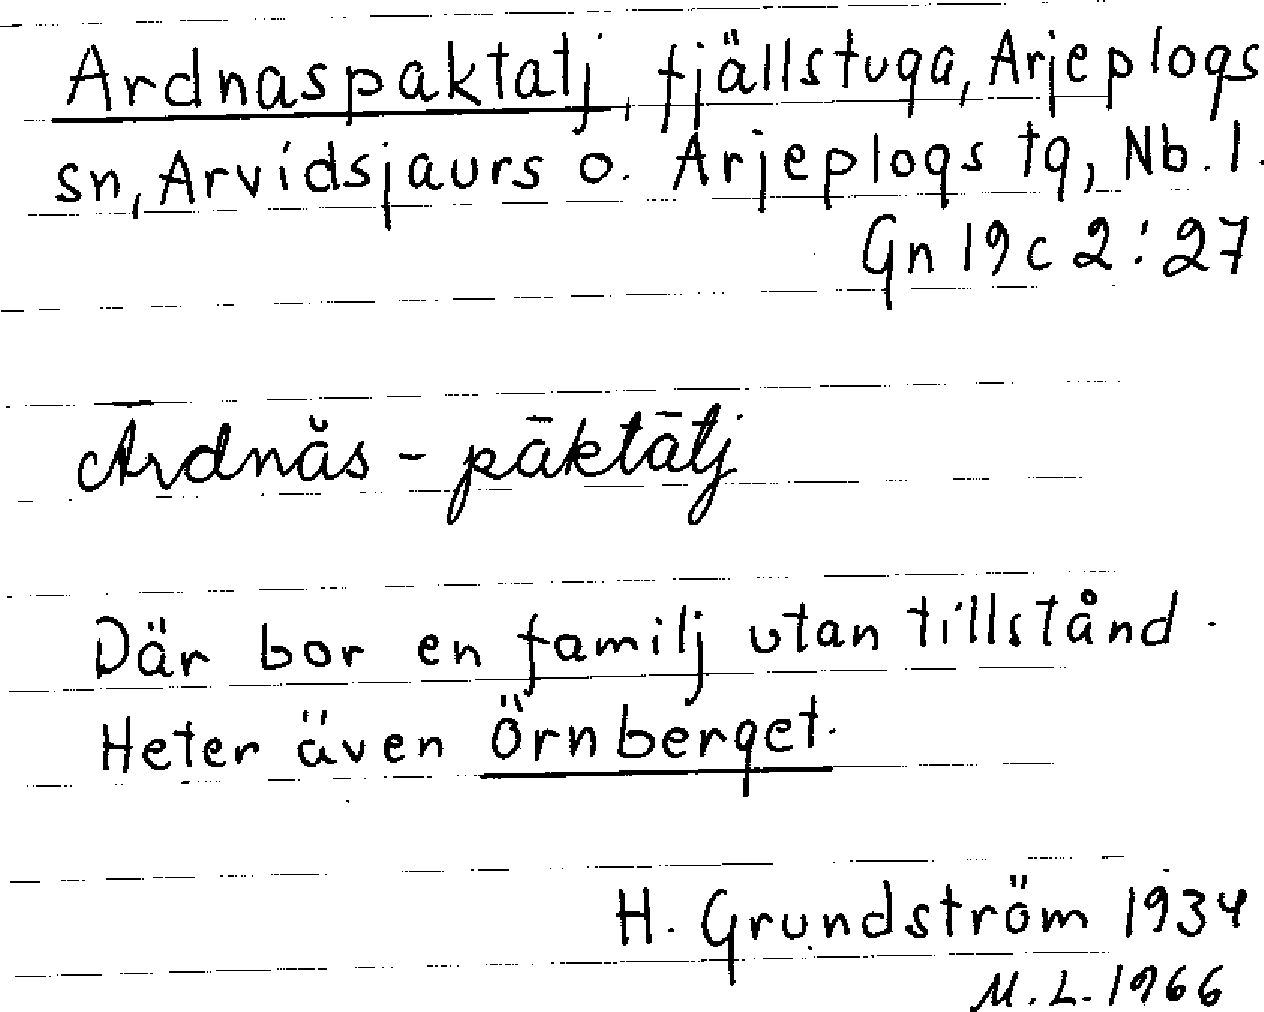 Ardnaspaktatj, fjällstuga, Arjeplogs
sn, Arvidsjaurs o. Arjeplogs tg, Nb. l.
Gn 19 c 2:27
Ārdnăs - pāktātj
Där bor en familj utan tillstånd.
Heter även Örnberget.
H. Grundström 1934
M. L. 1966